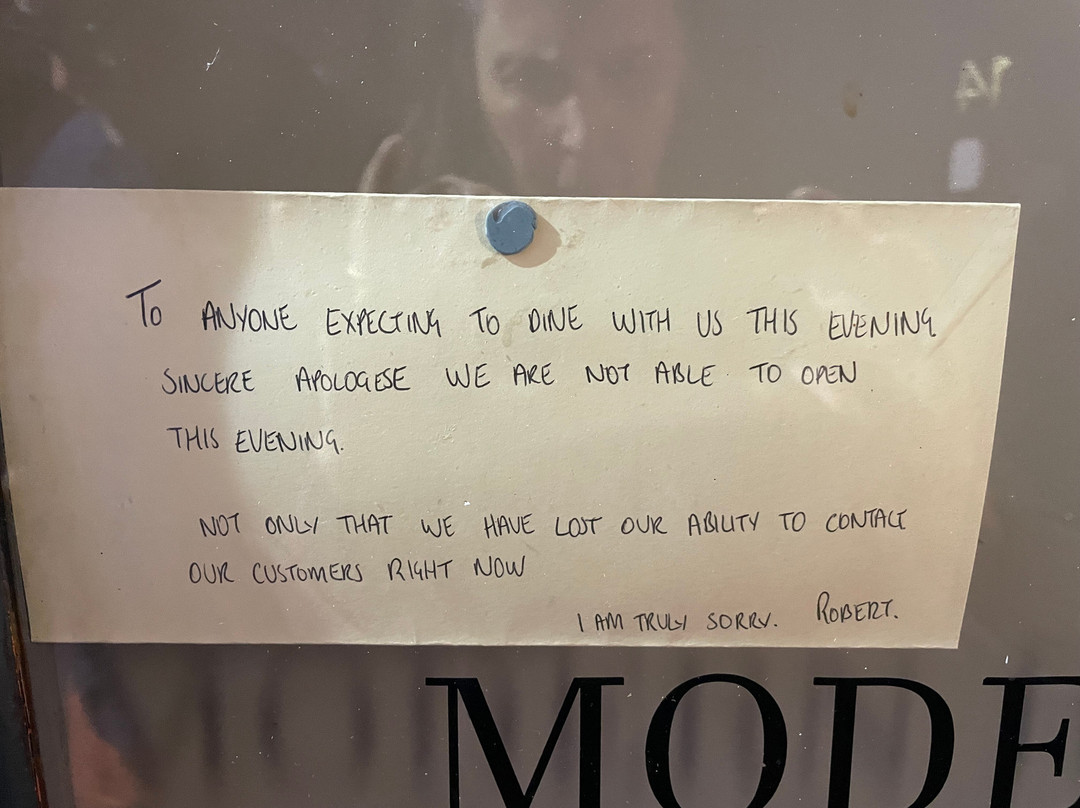 To ANYONE EXPECTING TO DINE WITH US THIS EVENING
SINCERE APOLOGESE WE ARE NOT ABLE TO OPEN
THIS EVENING.
NOT ONLY THAT WE HAVE LOST OUR ABILITY TO CONTACT
OUR CUSTOMERS RIGHT NOW
I AM TRULY SORRY. ROBERT.
MODE